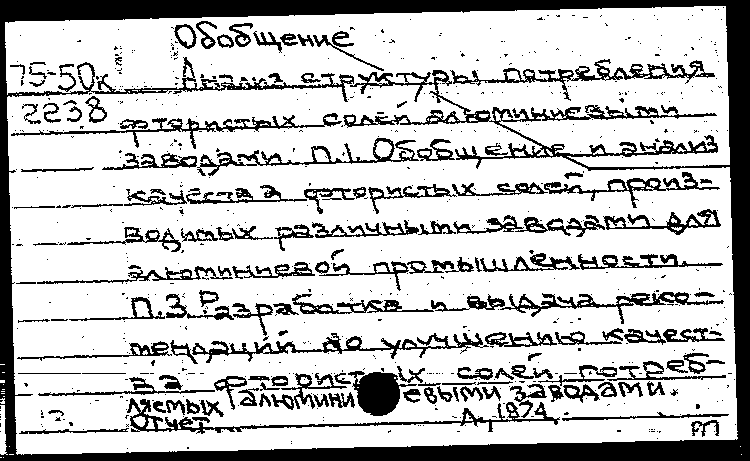 Обобщение
75-50к Анализ структуры потребления
2238 фтористых солей алюминиевыми
заводами. П.1. Обобщение и анализ
качества фтористых солей, произ-
водимых различными заводами для
алюминиевой промышленности.
П.3. Разработка и выдача реко-
мендаций по улучшению качест-
ва фтористых солей, потреб-
ляемых алюминиевыми заводами.
Отчет... Л., 1974.
РП